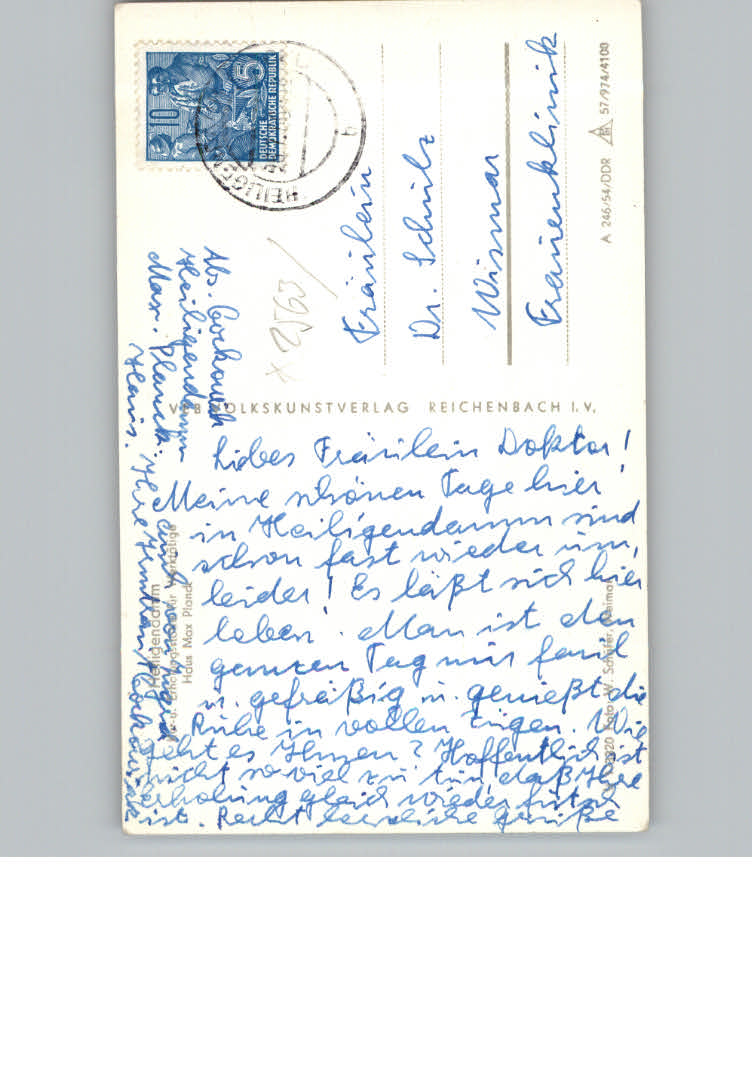 Liebes Fräulein Doktor!
Meine schönen Tage hier
in Heiligendamm sind
schon fast wieder um,
leider! Es läßt sich hier
leben. Man ist den
ganzen Tag nur faul
u. gefräßig u. genießt die
Ruhe in vollen Zügen. Wie
geht es Ihnen? Hoffentlich ist
nicht so viel zu tun, daß Ihre
Erholung gleich wieder futsch
ist. Recht herzliche Grüße
Ihre
und von
Abs.
Heiligendamm
Max. Planck.
Haus.
* 2560/
Fräulein
Dr. Schulz
Wismar
Frauenklinik
10 5
DEUTSCHE
DEMOKRATISCHE REPUBLIK
HEILIGEN
b
VEB VOLKSKUNSTVERLAG REICHENBACH I. V.
Heiligendamm
für Werktätige
Haus Max Planck
Foto: W. Schäfer, Weimar
A 246/54/DDR 57/974/4100